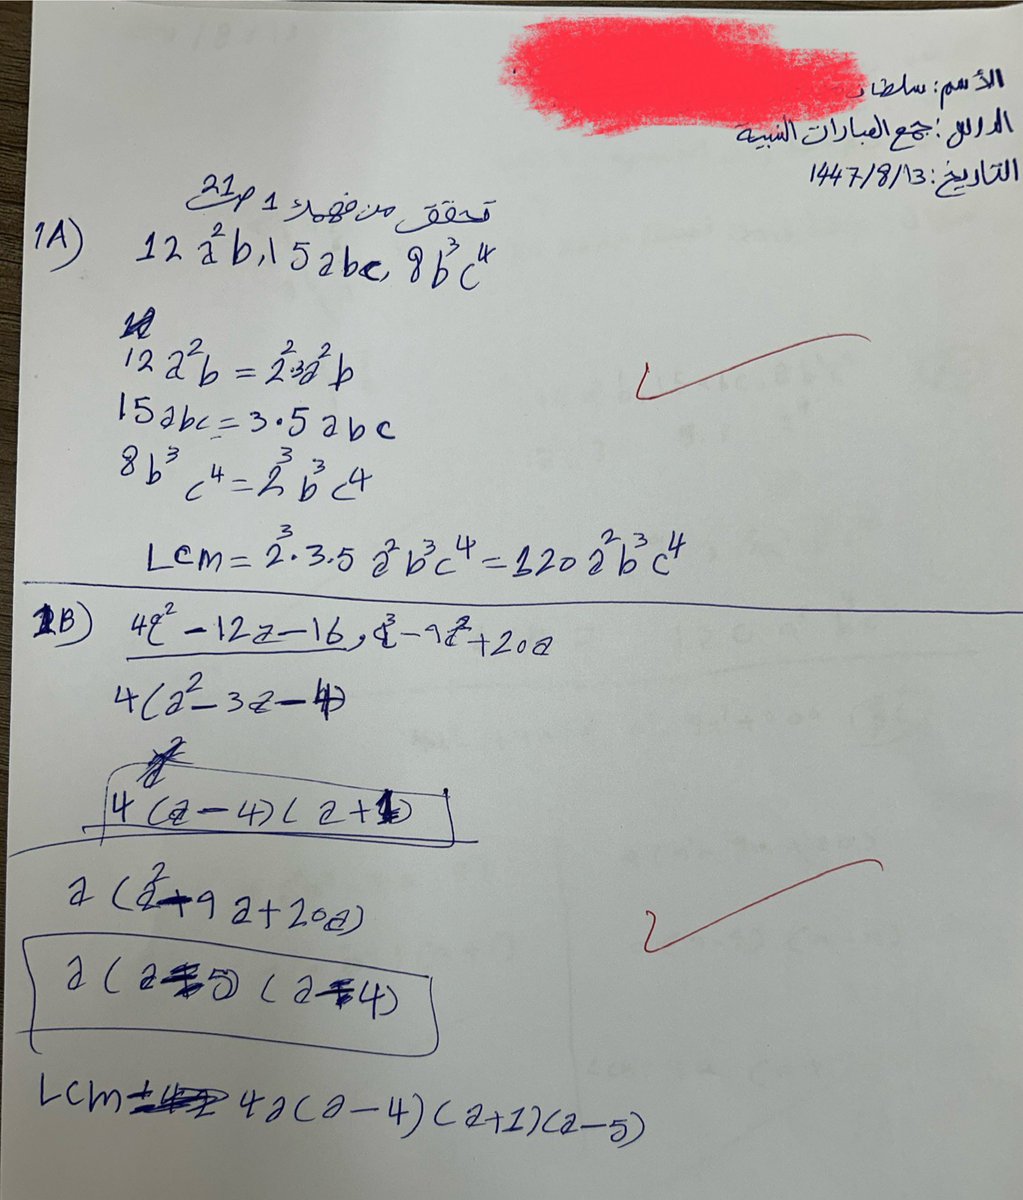 الأسم: سلطان
الدرس: جمع العبارات النسبية
التاريخ: 1447/8/13
تحقق من فهمك 1 ص21
1A) 12a²b, 15abc, 8b³c⁴
12a²b = 2²·3a²b
15abc = 3·5abc
8b³c⁴ = 2³b³c⁴
Lcm = 2³·3·5 a²b³c⁴ = 120a²b³c⁴
1B) 4a²-12a-16, a³-9a²+20a
4(a²-3a-4)
4(a-4)(a+1)
a(a²-9a+20a)
a(a-5)(a-4)
Lcm = 4a(a-4)(a+1)(a-5)